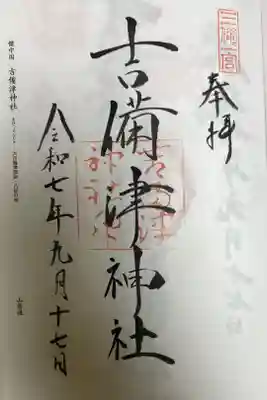 三備一宮
奉拝
吉備津神社
令和七年九月十七日
備中国 吉備津神社